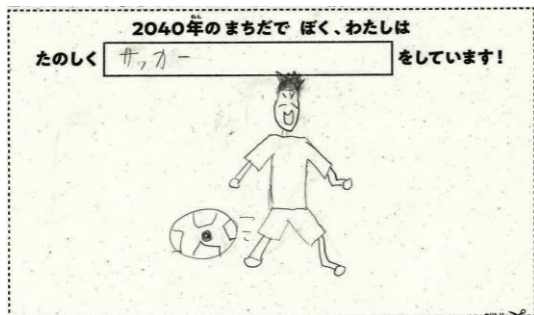 2040年のまちだで ぼく、わたしは
たのしく サッカー をしています!